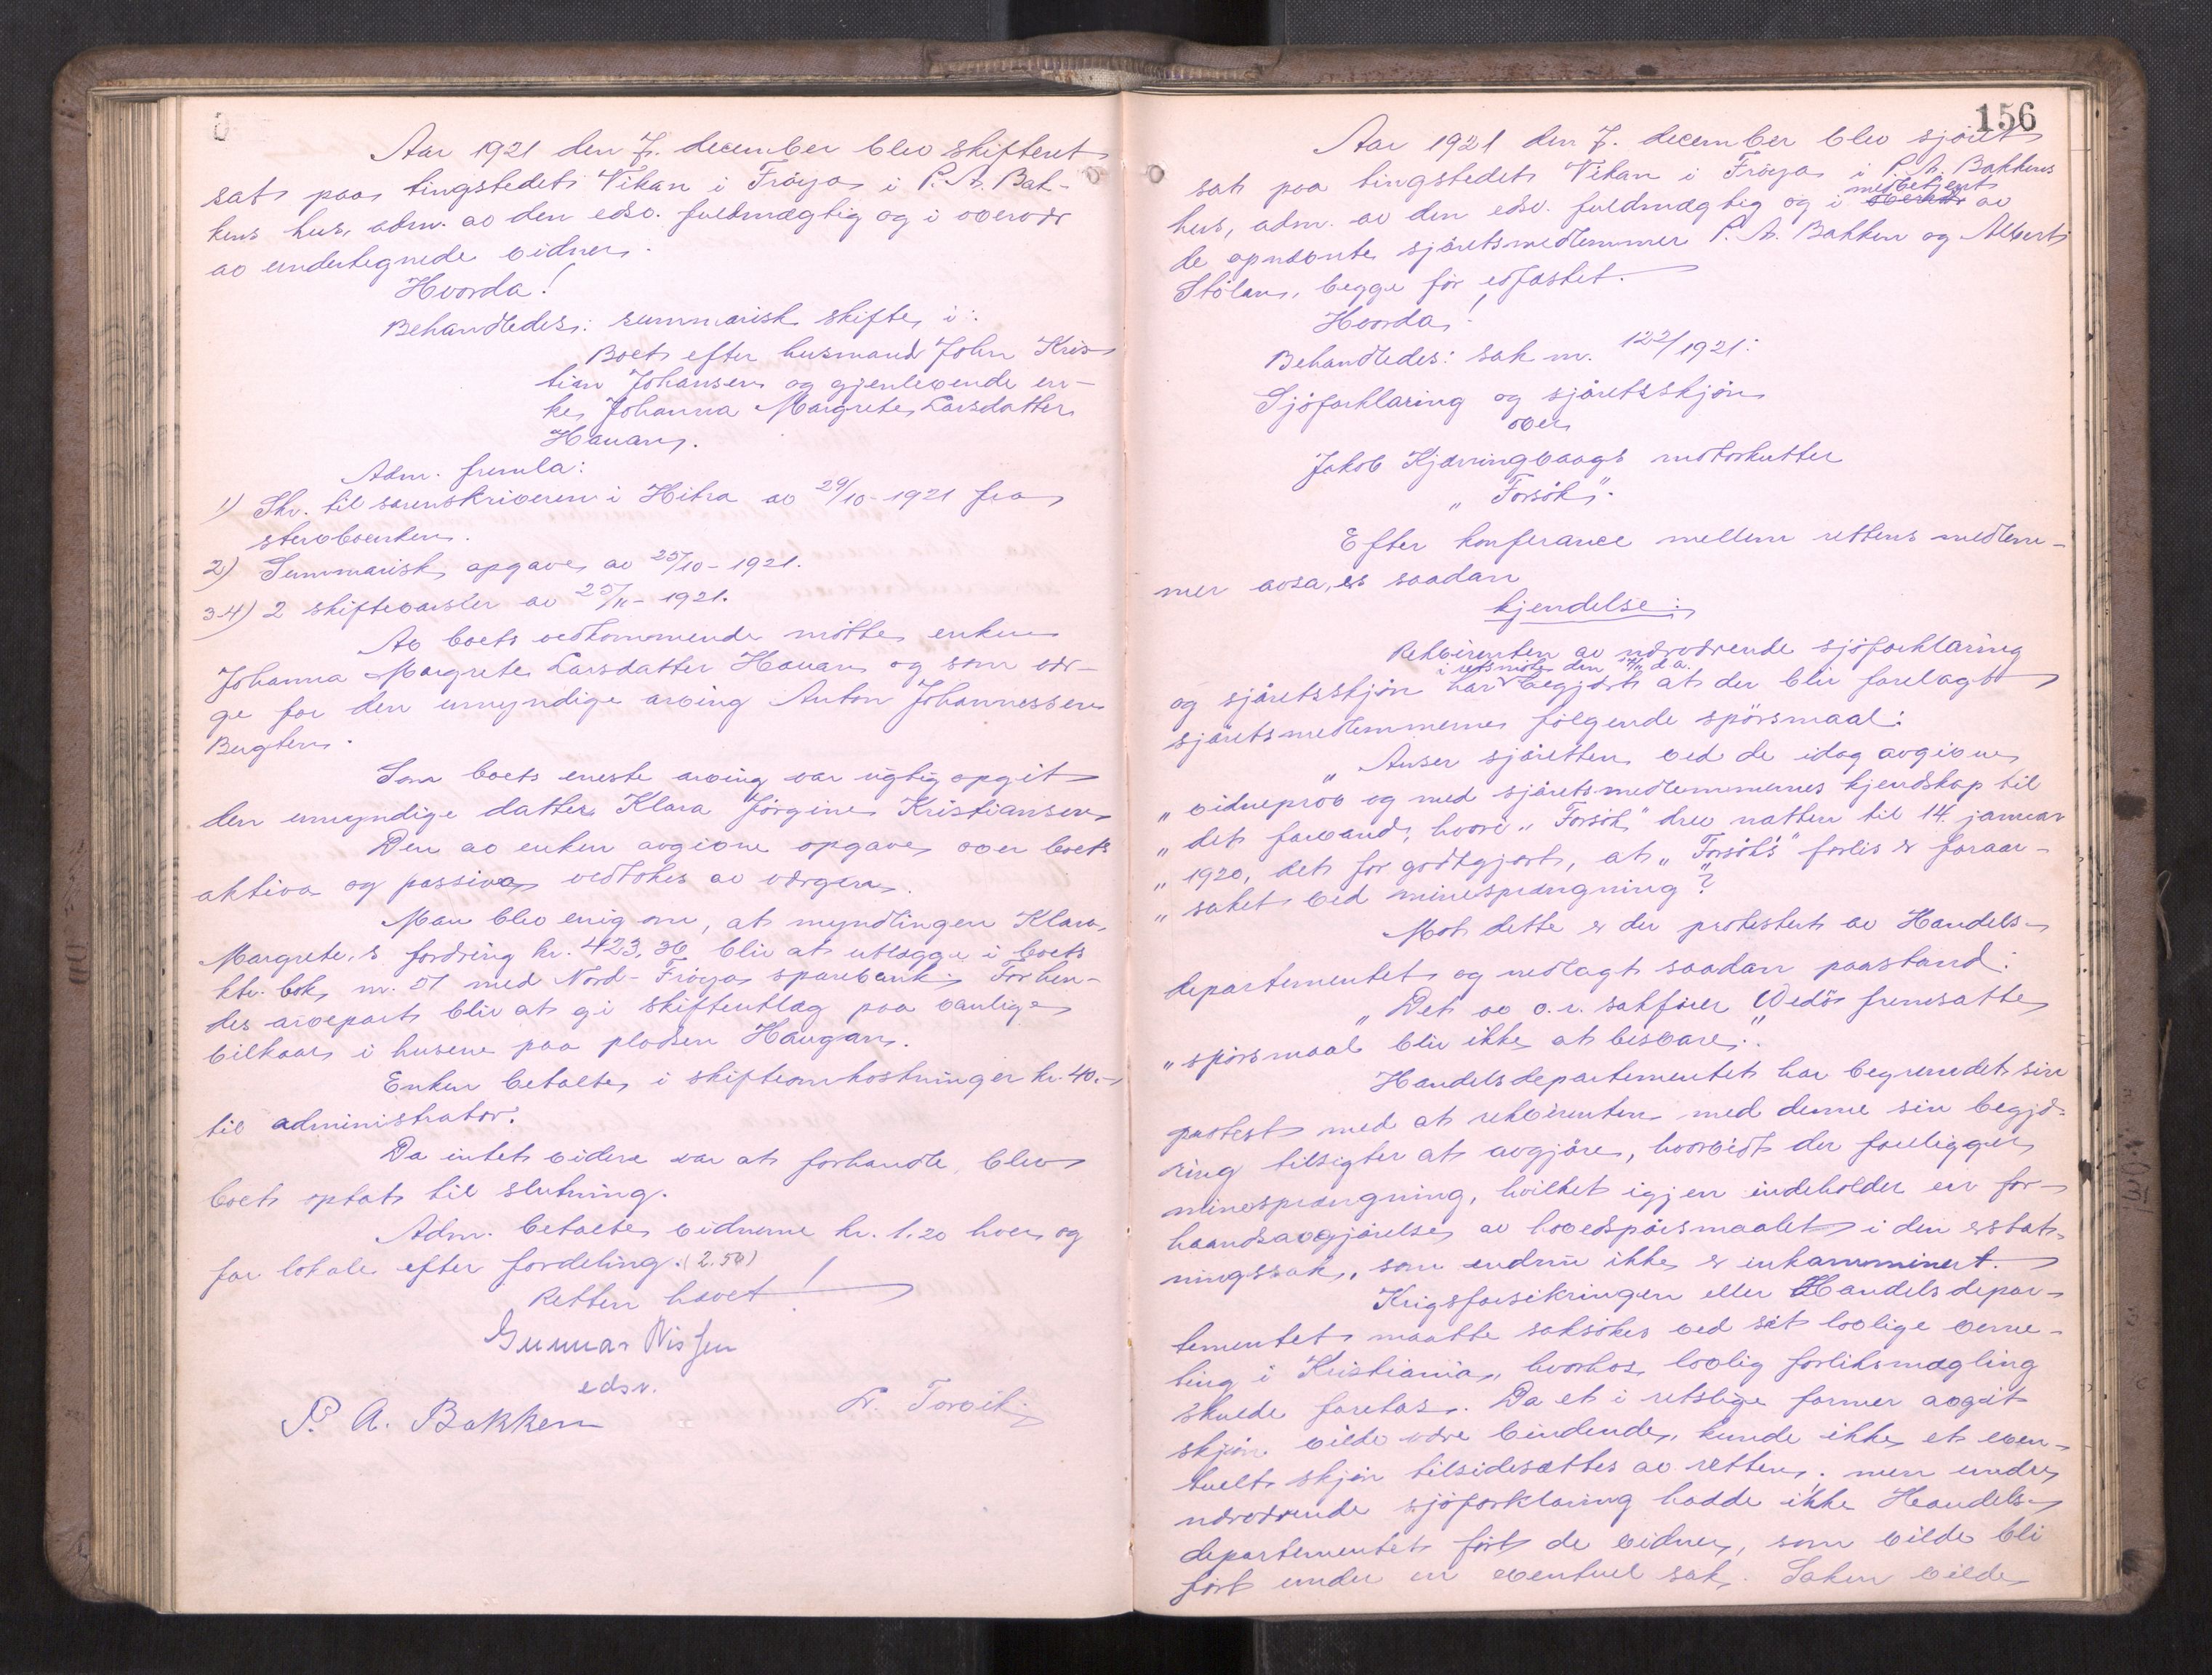 Aar 1921 den 7. december blev skifteret
sat paa tingstedet Vikan i Frøya i P. A. Bak-
kens hus, adm. av den edsv. fuldmægtig og i overvær
av undertegnede vidner.
Hvorda!
Behandledes: summarisk skifte i:
Boet efter husmand John Kris-
tian Johansen og gjenlevende en-
ke, Johanna Margrete Larsdatter
Hauan.
Adm. fremla:
1) Skr. til sorenskriveren i Hitra av 29/10-1921 fra
sterboenken.
2) Summarisk opgave av 25/10-1921.
3-4) 2 skiftevarsler av 25/11-1921.
Av boets vedkommende møtte enken
Johanna Margrete Larsdatter Hauan og som vær-
ge for den umyndige arving Anton Johannessen
Bergten.
Som boets eneste arving var rigtig opgit
den umyndige datter Klara Jørgine Kristiansen
Den av enken avgivne opgave over boets
aktiva og passiva vedtokes av værgen.
Man blev enig om, at myndlingen Klara
Margrete's fordring kr. 423,36 blir at utlægge i boets
ktr. bok nr. 51 med Nord-Frøya sparebank. For hen-
des arvepart blir at gi skifteutlæg paa vanlige
vilkaar i husene paa pladsen Haugan.
Enken betalte i skifteomkostninger kr. 40.-
til administrator.
Da intet videre var at forhandle, blev
boet optat til slutning.
Adm. betalte vidnerne kr. 1.20 hver og
for lokale efter fordeling. (2.50)
Retten hævet!
Gunnar Nissen
edsv.
P. A. Bakken
Torvik
156
Aar 1921 den 7. december blev sjøret
sat paa tingstedet Vikan i Frøya i P. A. Bakkens
hus, adm. av den edsv. fuldmægtig og i overvær medbetjent av
de opnævnte sjøretsmedlemmer P. A. Bakken og Albert
Stølan, begge før edfæstet.
Hvorda!
Behandledes: sak nr. 122/1921:
Sjøforklaring og sjøretsskjøn
over
Jakob Kjærringvaags motorkutter
"Forsøk".
Efter konferance mellem rettens medlem-
mer avsa, es saadan
kjendelse:
Rekvirenten av nærværende sjøforklaring
og sjøretsskjøn har i retsmøte den d.a. begjært at der blir forelagt
sjøretsmedlemmerne følgende spørsmaal:
" Anser sjøretten ved de idag avgivne
" vidneprov og med sjøretsmedlemmernes kjendskap til
" det farvand, hvori "Forsøk" drev natten til 14. januar
" 1920, det for godtgjort, at "Forsøk's" forlis er foraar-
" saket ved minesprængning?"
Mot dette er der protestert av Handels-
departementet og nedlagt saadan paastand:
" Det av o.r. sakfører Wedø fremsatte
" spørsmaal blir ikke at besvare."
Handelsdepartementet har begrundet sin
protest med at rekvirenten med denne sin begjæ-
ring tilsigter at avgjøre, hvorvidt der foreligger
minesprængning, hvilket igjen indeholder en for-
haandsavgjørelse av hovedspørsmaalet i den erstat-
ningssak, som endnu ikke er inkamminert.
Krigsforsikringen eller Handelsdepar-
tementet maatte saksøkes ved sit lovlige verne-
ting i Kristiania, hvorhos lovlig forliksmægling
skulde foretas. Da et i retslige former avgit
skjøn vilde være bindende, kunde ikke et even-
tuelt skjøn tilsidesættes av retten, men under
nærværende sjøforklaring hadde ikke Handels-
departementet ført de vidner, som vilde bli
ført under en eventuel sak. Saken vilde